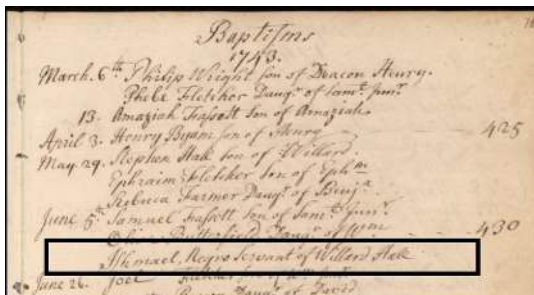 Baptisms
1743.
March. 6th Philip Wright son of Deacon Henry.
Phebe Fletcher Daugr. of Samll. Junr.
13. Amaziah Fassett son of Amaziah
April 3. Henry Byam son of Henry 425
May. 29. Stephen Hale son of Willard.
Ephraim Fletcher son of Ephm
Rebecca Farmer Daugr. of Benja.
June 5th Samuel Fassett son of Samll Junr.
Olive Butterfield Daugr. of Wm 430
Ishmael, Negro Servant of Willard Hale
June 26. Joel Fletcher son of
Daugr. of David